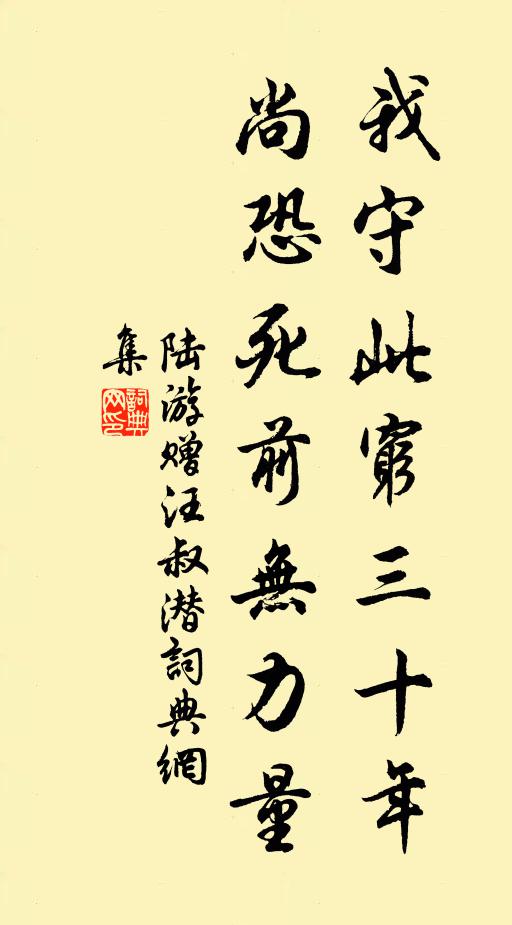 我守此窮三十年
尚恐死前無力量
陆游赠汪叔潜詞典網
集
詞典
网印